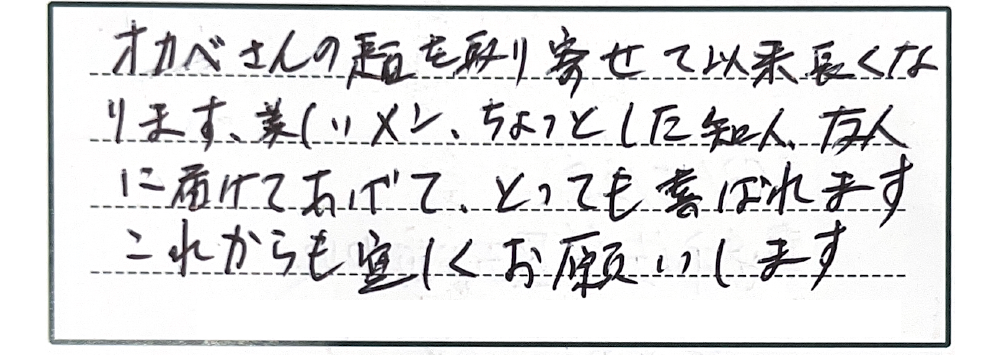 オカベさんの麺を取り寄せて以来長くな
ります、美しいメン、ちょっとした知人、友人
に届けてあげて、とっても喜ばれます
これからも宜しくお願いします